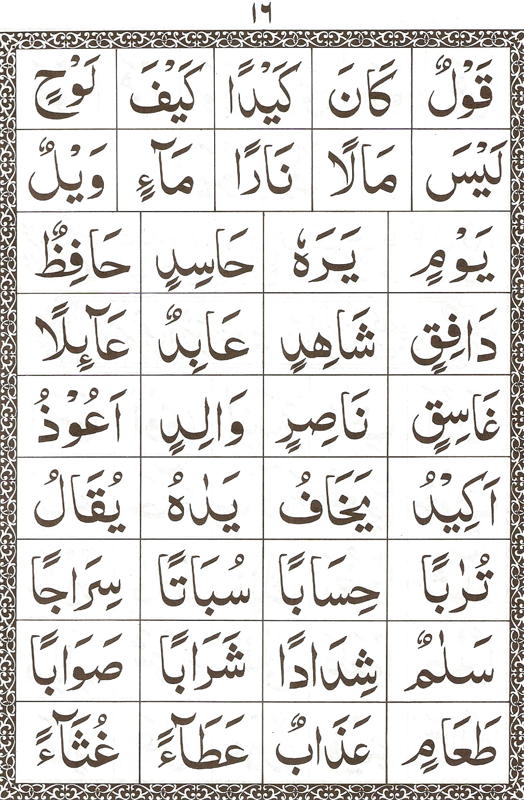 ١٦
قَوْلٌ كَانَ كَيْدًا كَيْفَ لَوْحٍ
لَيْسَ مَالًا نَارًا مَآءٍ وَيْلٌ
يَوْمٍ يَرَهٗ حَاسِدٍ حَافِظٌ
دَافِقٍ شَاهِدٍ عَابِدٌ عَآئِلًا
غَاسِقٍ نَاصِرٍ وَالِدٍ اَعُوْذُ
اَكِيْدُ يَخَافُ يَدٰهُ يُقَالُ
تُرٰبًا حِسَابًا سُبَاتًا سِرَاجًا
سَلٰمٌ شِدَادًا شَرَابًا صَوَابًا
طَعَامٍ عَذَابٌ عَطَآءً غُثَآءً